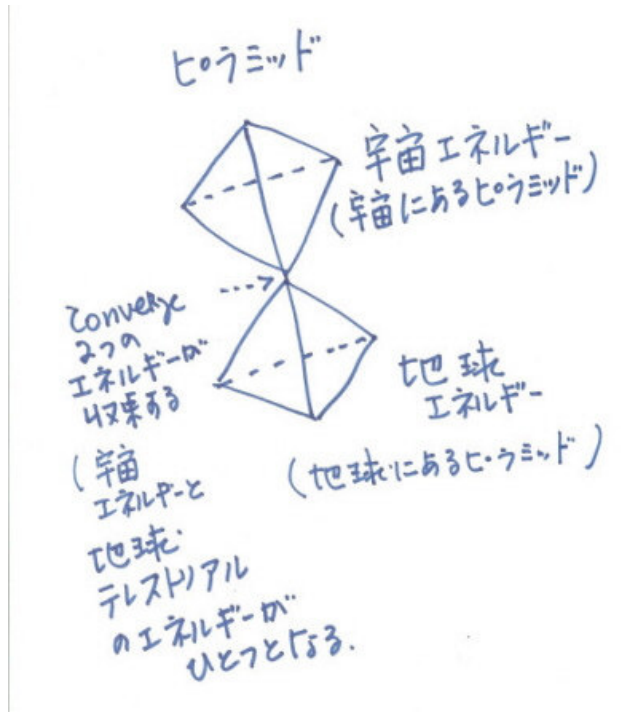 ピラミッド
宇宙エネルギー
(宇宙にあるピラミッド)
Converge
2つの
エネルギーが
収束する
地球
エネルギー
(地球にあるピラミッド)
(宇宙
エネルギーと
地球
テレストリアル
のエネルギーが
ひとつとなる.